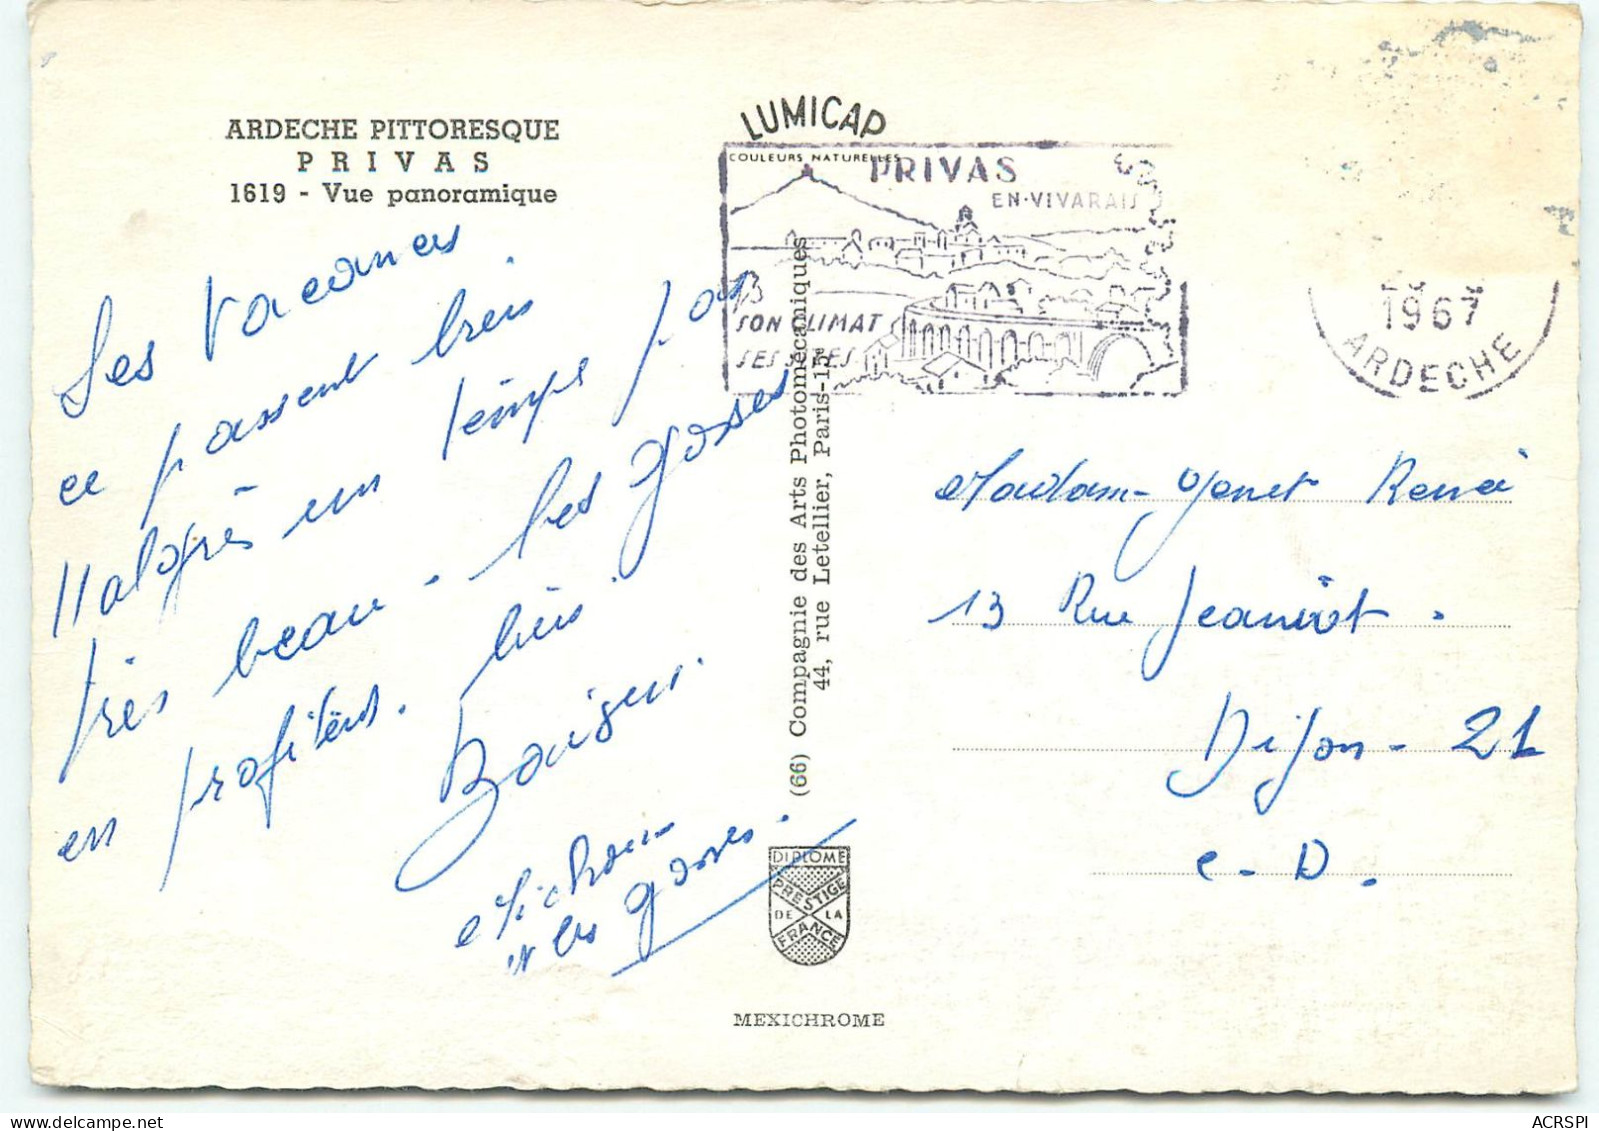 ARDECHE PITTORESQUE
PRIVAS
1619 - Vue panoramique
Les Vacances
ce passent bien
Malogrès un temps pas
très beau - les gosses
en profitens. bien.
Baisers.
Michou
les gosses.
LUMICAP
COULEURS NATURELLES
PRIVAS
EN-VIVARAIS
SON CLIMAT
SES SITES
1967
ARDECHE
(66) Compagnie des Arts Photomécaniques
44, rue Letellier, Paris-15e
Madam- Renée
13 Rue Jeannot.
Dijon - 21
C-D.
DIPLOME
PRESTIGE
DE LA
FRANCE
MEXICHROME
ACRSPI